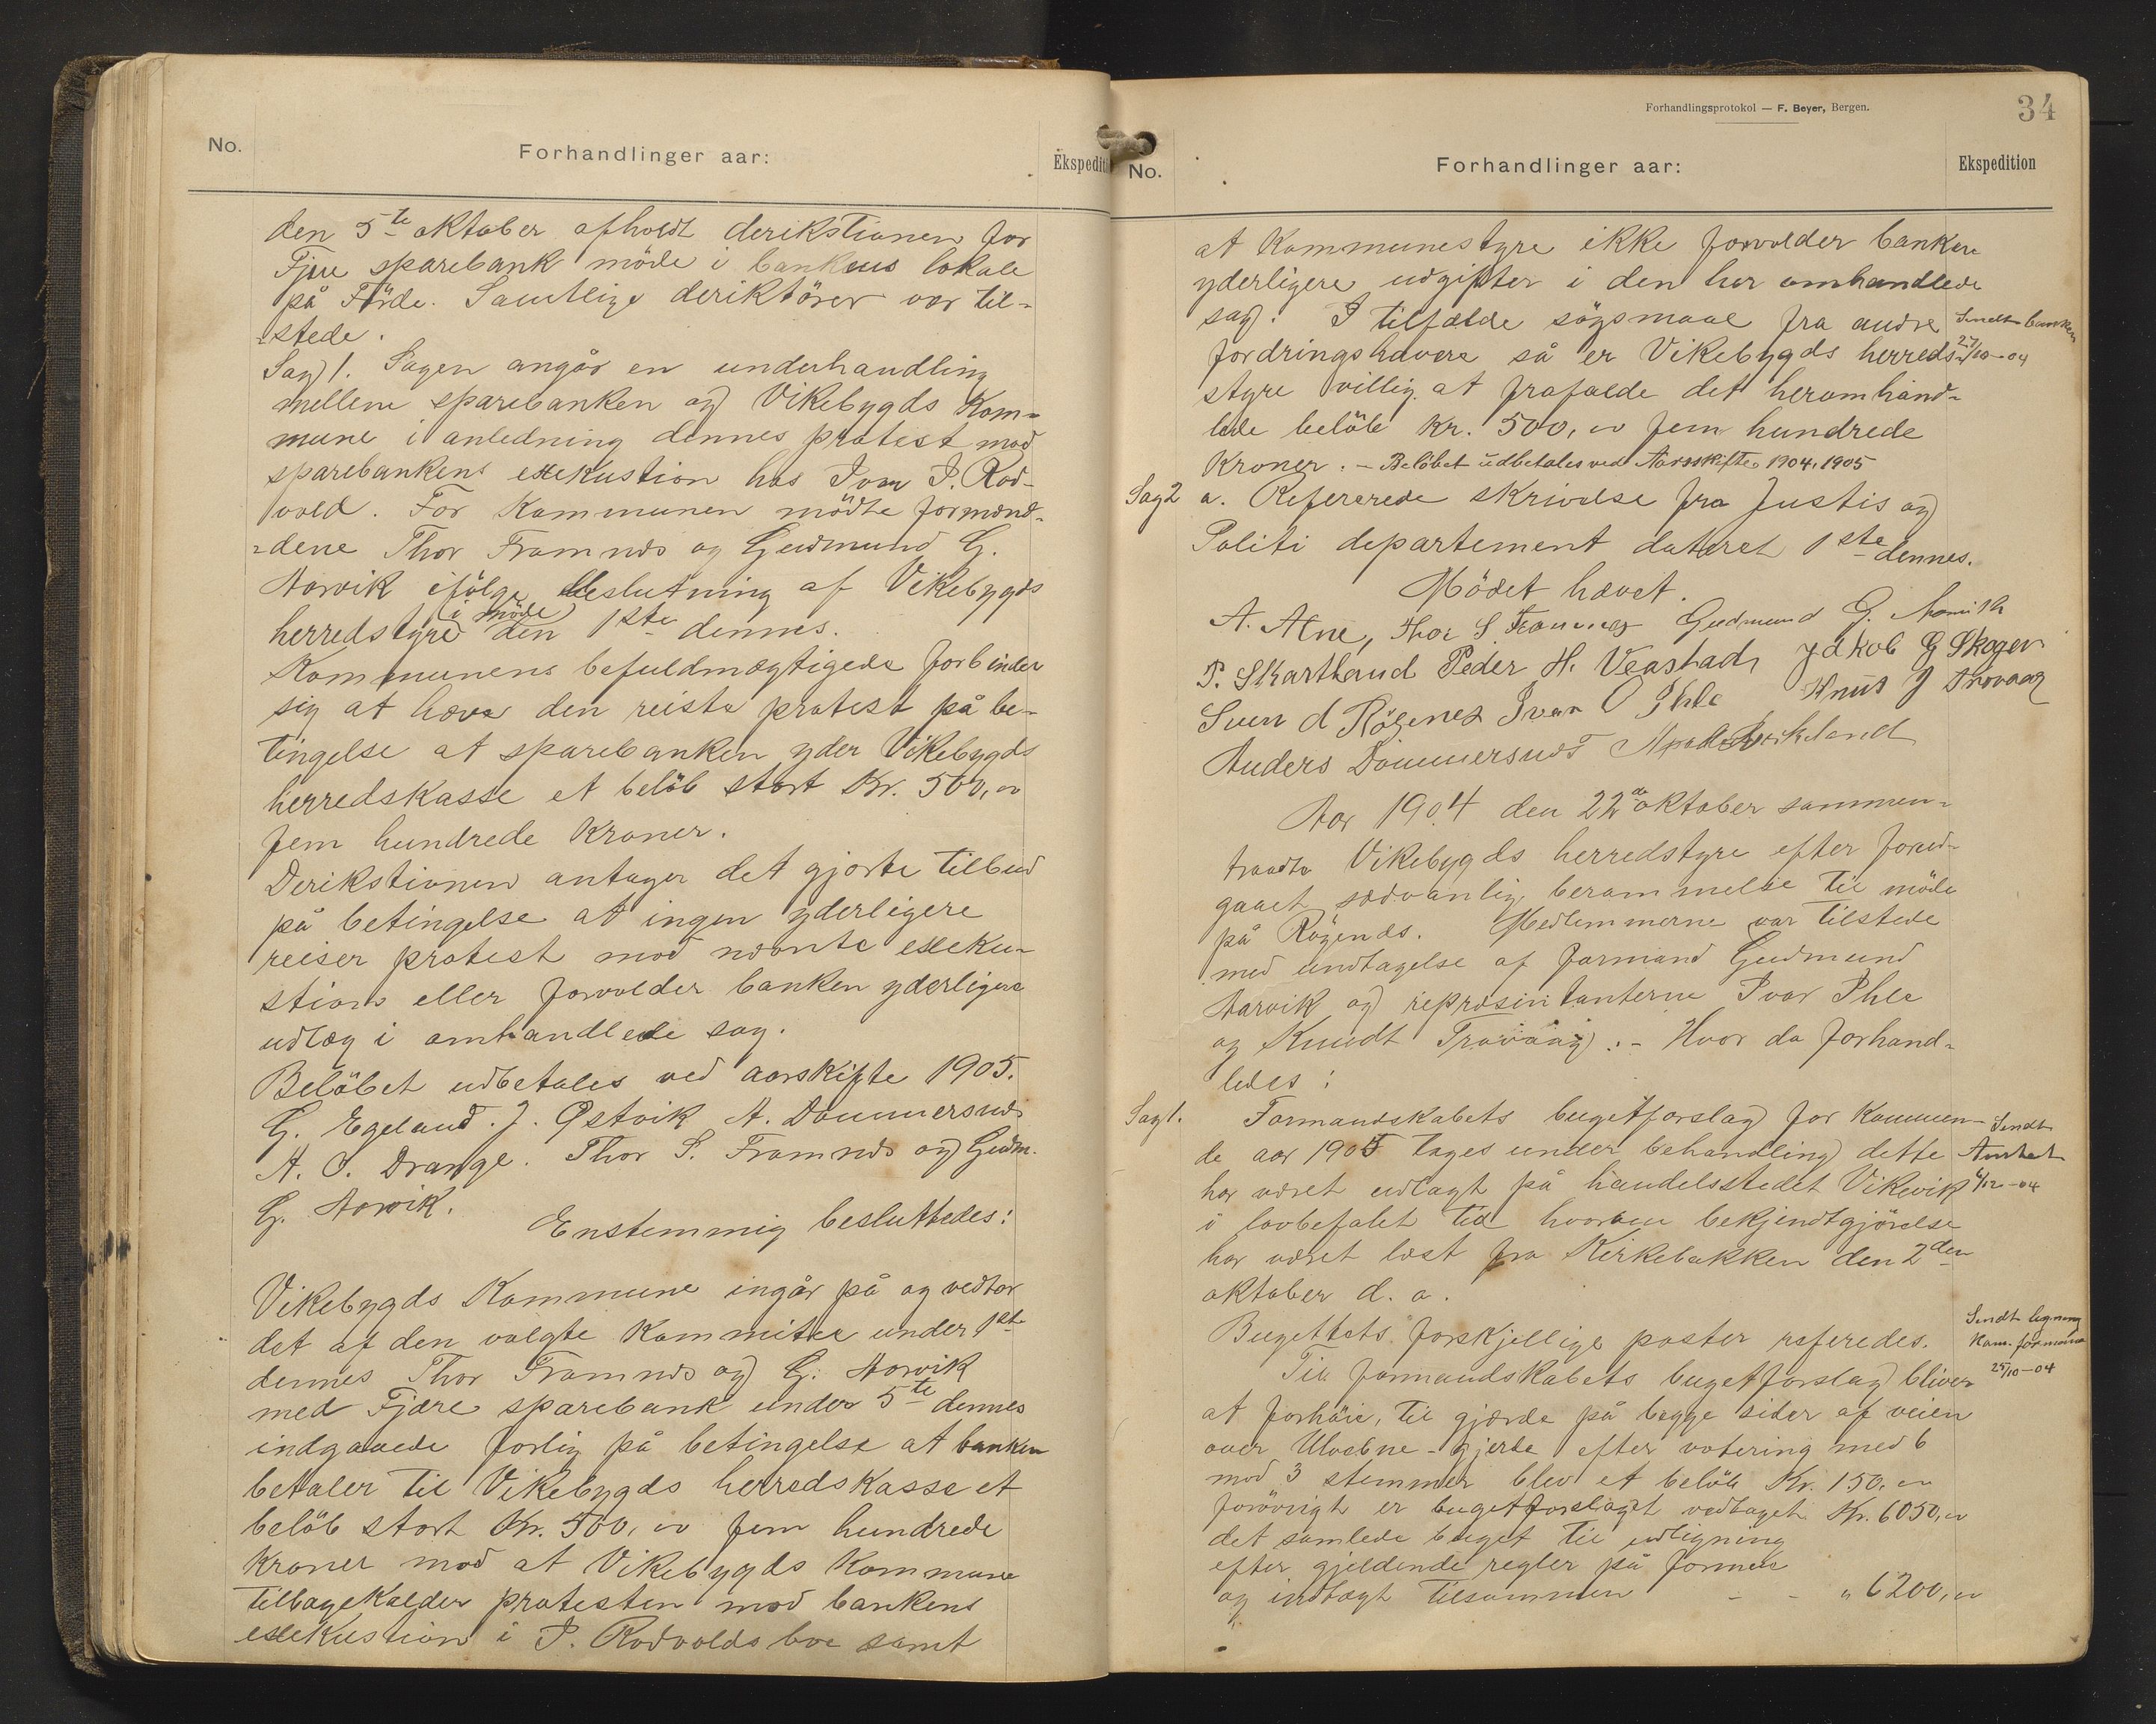 No.
Forhandlinger aar:
Ekspediti
den 5te oktober afholdt derikstionen for
Fjære sparebank möde i bankens lokale
på Förde. Samtlige deriktörer var til-
stede.
Sag 1. Sagen angår en underhandling
mellem sparebanken og Vikebygds Kom-
mune i anledning dennes protest mod
sparebankens exekustion hos Ivar I. Rod-
vold. For Kommunen mödte formænd-
dene Thor Framnæs og Gudmund G.
Aarvik ifölge beslutning af Vikebygds
herredstyre i möde den 1ste dennes.
Kommunens befuldmægtigede forbinder
sig at hæve den reiste protest på be-
tingelse at sparebanken yder Vikebygds
herredskasse et belöb stort Kr. 500,00
fem hundrede Kroner.
Derikstionen antager det gjorte tilbud
på betingelse at ingen yderligere
reiser protest mod nævnte exeku-
stion eller forvolder banken yderligere
udlæg i omhandlede sag.
Belöbet udbetales ved aarskifte 1905.
G. Egeland. J. Østvik A. Dommersnæs
A. O. Drange. Thor S. Framnæs og Gudm.
G. Aarvik.
Enstemmig besluttedes:
Vikebygds Kommune ingår på og vedtar
det af den valgte Kommitee under 1ste
dennes Thor Framnæs og G. Aarvik
med Fjære sparebank under 5te dennes
indgaaede forlig på betingelse at banken
betaler til Vikebygds herredskasse et
belöb stort Kr. 500,00 fem hundrede
kroner mod at Vikebygds Kommune
tilbagekalder protesten mod bankens
exekustion i I. Rodvolds boe samt
Forhandlingsprotokol — F. Beyer, Bergen.
34
No.
Forhandlinger aar:
Ekspedition
at Kommunestyre ikke forvolder banken
yderligere udgifter i den her omhandlede
sag. I tilfælde sögsmaal fra andre
Sendt banken
fordringshavere så er Vikebygds herreds-
27/10-04
styre villig at frafalde det heromhand-
lede belöb Kr. 500,00 fem hundrede
Kroner. - Belöbet udbetales ved Aarsskifte 1904, 1905
Sag 2 a. Refererede skrivelse fra Justis og
Politi departement dateret 1ste dennes.
Mödet hævet.
A. Alne, Thor S. Framnes Gudmund G. Aarvik
P. Skartland Peder H. Veastad, Jakob G Skogen
Sven d Rögenes Ivar O Ihle Knut J Trovaag
Anders Dommersnæs
Aar 1904 den 22de oktober sammen-
traadte Vikebygds herredstyre efter forud-
gaaet sædvanlig berammelse til möde
på Rögenæs. Medlemmerne var tilstede
med undtagelse af formand Gudmund
Aarvik og repræsintanterne Ivar Ihle
og Knudt Trovaag. - Hvor da forhand-
ledes:
Sag 1. Formandskabets bugetforslag for Kommen-
de aar 1905 tages under behandling dette
Sendt
Amtet
6/12-04
har været udlagt på handelsstedet Vikevik
i lovbefalet tid hvorom bekjendtgjörelse
har været læst fra Kirkebakken den 2den
oktober d. a.
Bugettets forskjellige poster referedes.
Sendt ligning
Kom. formand
25/10-04
Til formandskabets bugetforslag bliver
at forhöie, til gjærde på begge sider af veien
over Ulvebne-gjerde efter votering med 6
mod 3 stemmer blev et belöb Kr. 150,00
forövrigt er bugetforslaget vedtaget Kr. 6050,00
det samlede buget til udligning
efter gjeldende regler på formue
og indtægt tilsammen - - " 6200,00